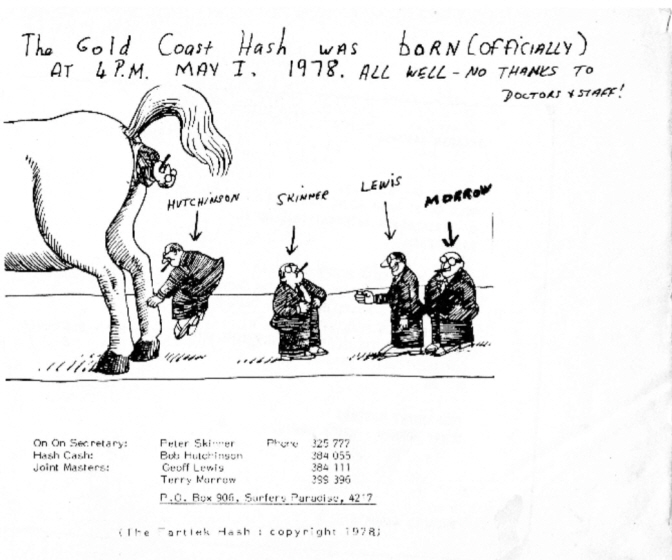 The Gold Coast Hash was born (officially)
AT 4 P.M. MAY 1. 1978. ALL WELL - NO THANKS TO
DOCTORS & STAFF!
HUTCHINSON
SKINNER
LEWIS
MORROW
On On Secretary: Peter Skinner Phone 325 777
Hash Cash: Bob Hutchinson 384 055
Joint Masters: Geoff Lewis 384 111
Terry Morrow 399 396
P.O. Box 906, Surfers Paradise, 4217
(The Hash : copyright 1978)